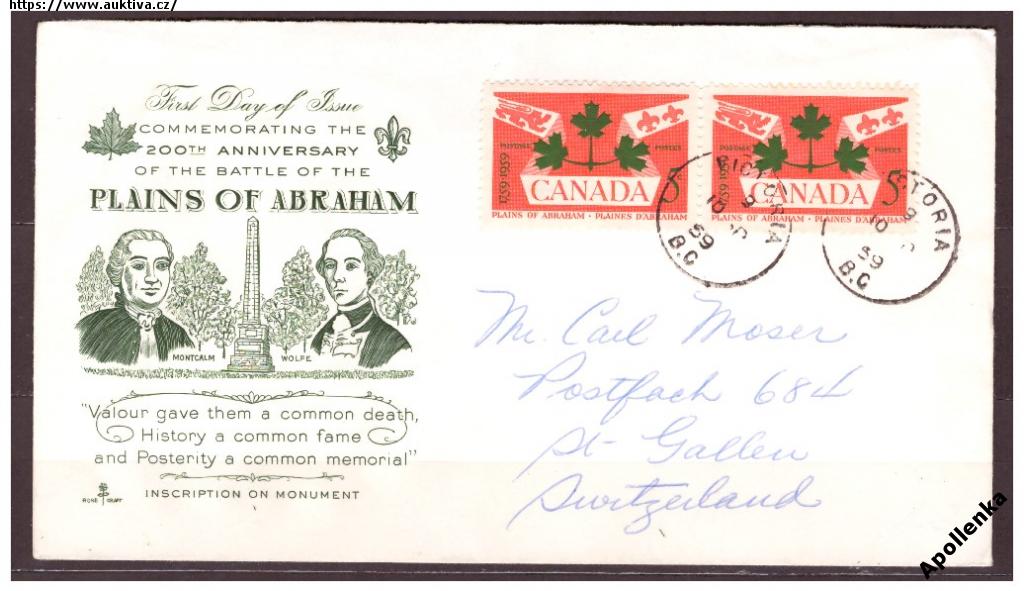 https://www.auktiva.cz/
First Day of Issue
COMMEMORATING THE
200TH ANNIVERSARY
OF THE BATTLE OF THE
PLAINS OF ABRAHAM
MONTCALM WOLFE
"Valour gave them a common death,
History a common fame
and Posterity a common memorial"
INSCRIPTION ON MONUMENT
ROSE CRAFT
POSTAGE POSTES
1759-1959
CANADA 5
PLAINS OF ABRAHAM · PLAINES D'ABRAHAM
POSTAGE POSTES
1759-1959
CANADA 5
PLAINS OF ABRAHAM · PLAINES D'ABRAHAM
VICTORIA
9
10
59
B.C
TORIA
9
10
59
B.C
Mr. Carl Moser
Postfach 684
St-Gallen
Switzerland
Apollenka